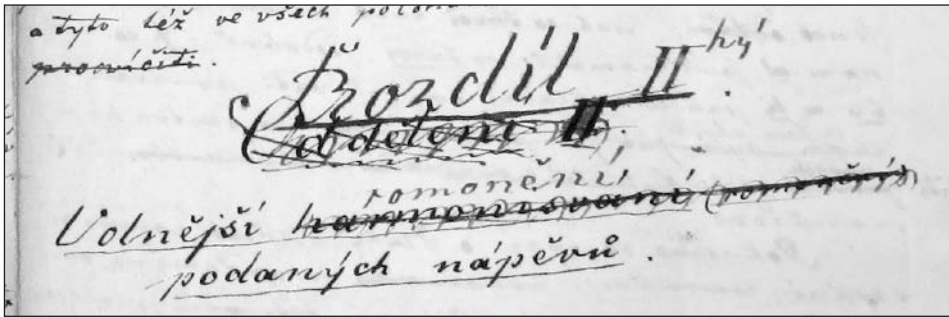 a tyto též ve všech poloh
procvičiti.
Rozdíl II hý.
Oddělení II.
romonění
Volnější harmonisování (romonění)
podaných nápěvů.